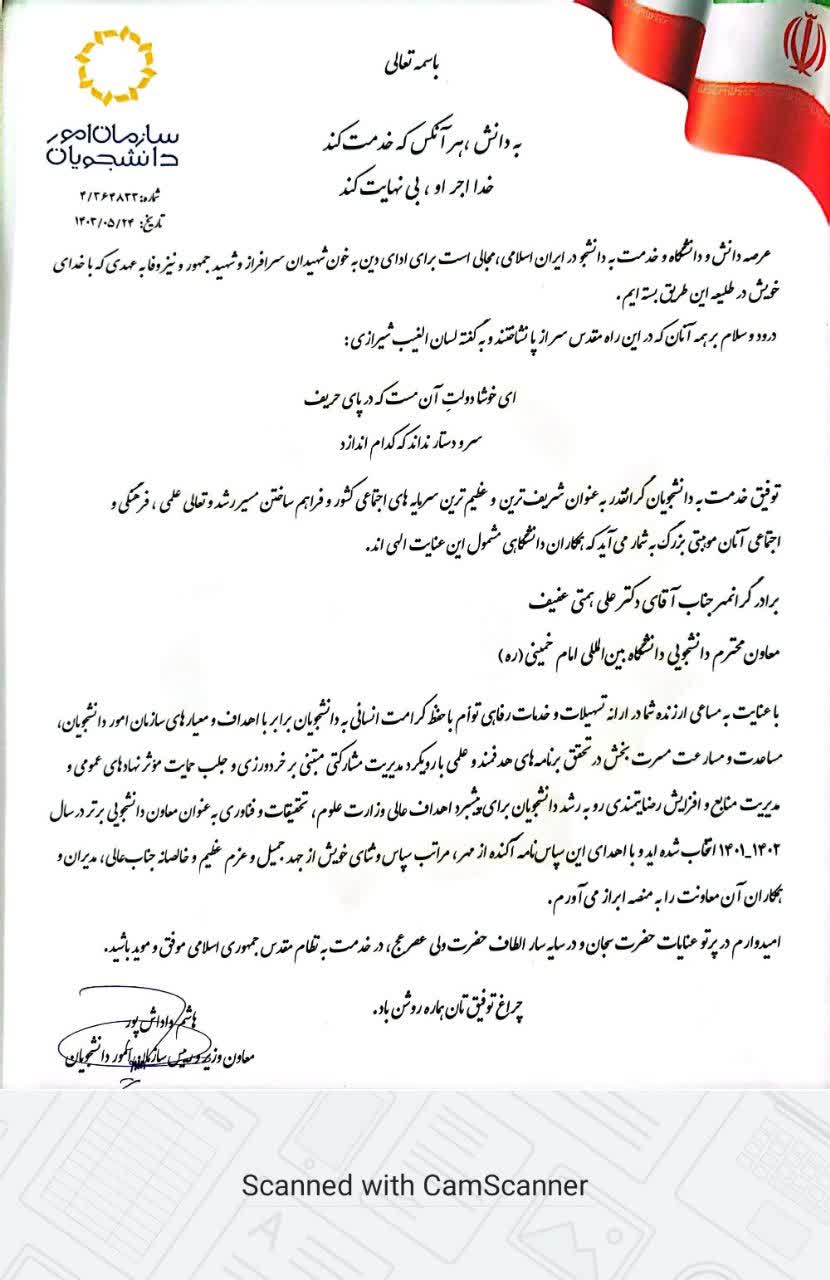 باسمه تعالی
سازمان امور
دانشجویان
شماره: ۴/۳۶۴۸۳۳
تاریخ: ۱۴۰۳/۰۵/۲۴
به دانش ،هر آنکس که خدمت کند
خدا اجر او ، بی نهایت کند
عرصه دانش و دانشگاه و خدمت به دانشجو در ایران اسلامی، مجالی است برای ادای دین به خون شهیدان سرافراز و شهید جمهور و نیز وفا به عهدی که با خدای
خویش در طلیعه این طریق بسته ایم.
درود و سلام بر همه آنان که در این راه مقدس سر از پا نشناختند و به گفته لسان الغیب شیرازی:
ای خوشا دولتِ آن مست که در پای حریف
سر و دستار نداند که کدام اندازد
توفیق خدمت به دانشجویان گرانقدر به عنوان شریف ترین و عظیم ترین سرمایه های اجتماعی کشور و فراهم ساختن مسیر رشد و تعالی علمی ، فرهنگی و
اجتماعی آنان موهبتی بزرگ به شمار می آید که همکاران دانشگاهی مشمول این عنایت الهی اند.
برادر گرانمهر جناب آقای دکتر علی همتی عفیف
معاون محترم دانشجویی دانشگاه بین‌المللی امام خمینی (ره)
با عنایت به مساعی ارزنده شما در ارائه تسهیلات و خدمات رفاهی توأم با حفظ کرامت انسانی به دانشجویان برابر با اهداف و معیارهای سازمان امور دانشجویان،
مساعدت و مسارعت مسرت بخش در تحقق برنامه های هدفمند و علمی با رویکرد مدیریت مشارکتی مبتنی بر خردورزی و جلب حمایت مؤثر نهادهای عمومی و
مدیریت منابع و افزایش رضایتمندی رو به رشد دانشجویان برای پیشبرد اهداف عالی وزارت علوم، تحقیقات و فناوری به عنوان معاون دانشجویی برتر در سال
۱۴۰۲_۱۴۰۱ انتخاب شده اید و با اهدای این سپاس نامه آکنده از مهر، مراتب سپاس و ثنای خویش از جهد جمیل و عزم عظیم و خالصانه جناب عالی، مدیران و
همکاران آن معاونت را به منصه ابراز می آورم.
امیدوارم در پرتو عنایات حضرت سبحان و در سایه سار الطاف حضرت ولی عصر عج، در خدمت به نظام مقدس جمهوری اسلامی موفق و موید باشید.
چراغ توفیق تان هماره روشن باد.
هاشم داداش پور
معاون وزیر و رییس سازمان امور دانشجویان
Scanned with CamScanner